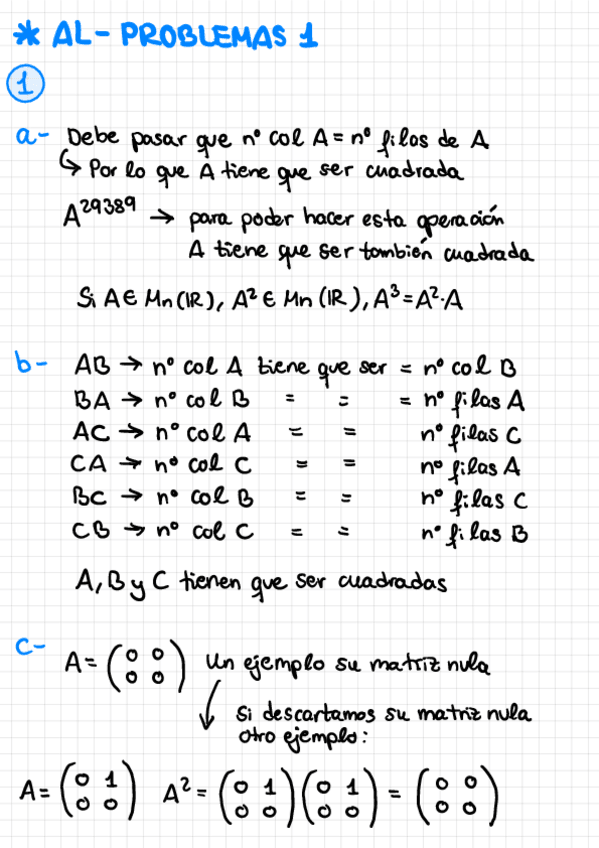 * AL - PROBLEMAS 1
1
a- Debe pasar que nº col A = nº filas de A
↳ Por lo que A tiene que ser cuadrada
A²⁹³⁸⁹ → para poder hacer esta operación
A tiene que ser también cuadrada
Si A ∈ Mn (IR), A² ∈ Mn (IR), A³ = A²·A
b- AB → nº col A tiene que ser = nº col B
BA → nº col B = = = nº filas A
AC → nº col A = = nº filas C
CA → nº col C = = nº filas A
BC → nº col B = = nº filas C
CB → nº col C = = nº filas B
A, B y C tienen que ser cuadradas
c- A = (0 0 / 0 0) Un ejemplo su matriz nula
↓ Si descartamos su matriz nula
otro ejemplo:
A = (0 1 / 0 0) A² = (0 1 / 0 0)(0 1 / 0 0) = (0 0 / 0 0)